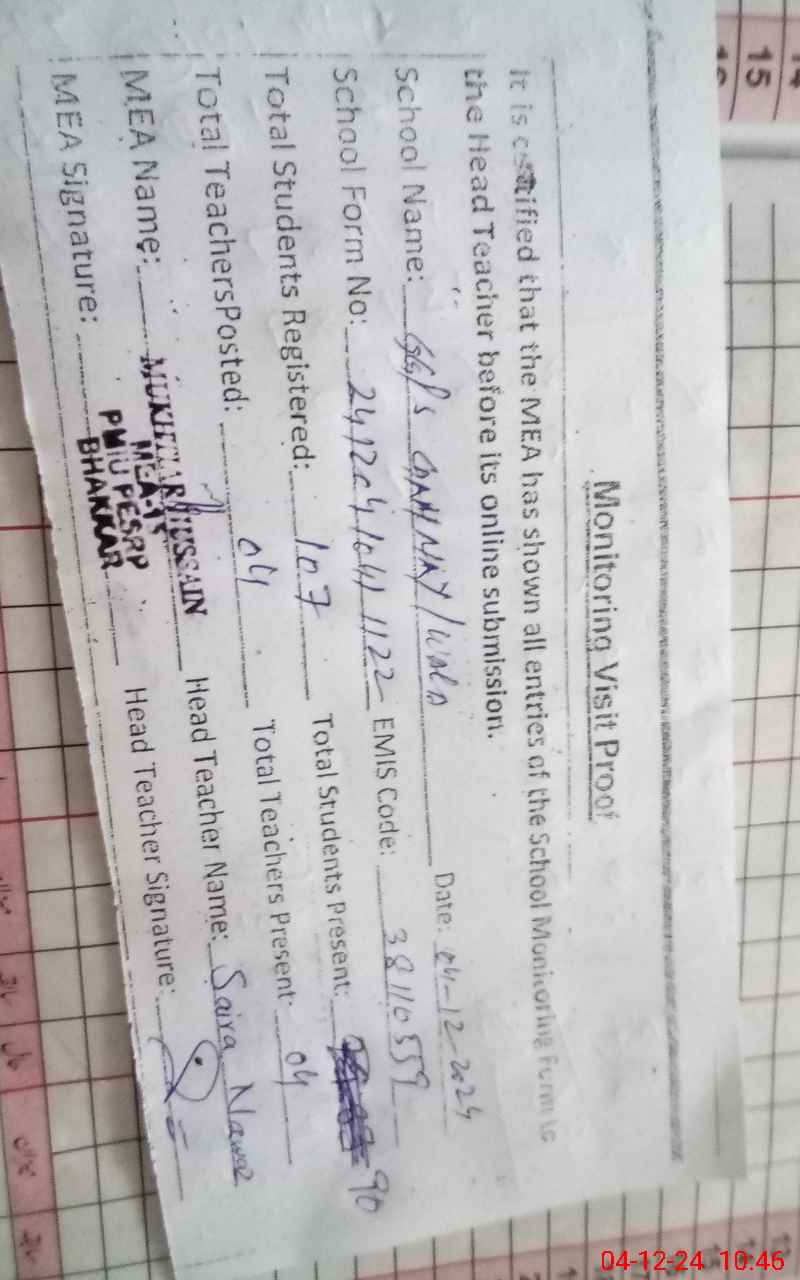 Monitoring Visit Proof
It is certified that the MEA has shown all entries of the School Monitoring Form to
the Head Teacher before its online submission.
School Name: Date: 04-12-2024
School Form No: 2412041041122 EMIS Code: 38110559
Total Students Registered: 107 Total Students Present: 90
Total TeachersPosted: 04 Total Teachers Present: 04
MEA Name: MUKHTAR HUSSAIN Head Teacher Name: Saira Nawaz
MEA Signature: Head Teacher Signature:
PMIU PESRP
BHAKKAR
15
04-12-24 10:46